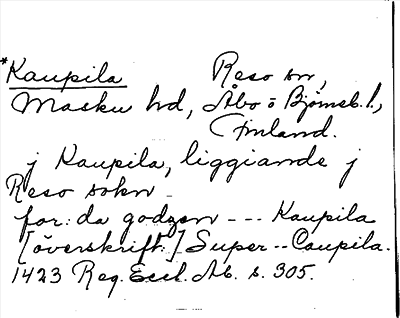 *Kaupila Reso sn,
Masku hd, Åbo o Björneb. l.,
Finland.
j Kaupila, liggiande j
Reso sokn -
for: da godzen --- Kaupila
[överskrift:] Super -- Caupila.
1423 Reg. Eccl. Ab. s. 305.